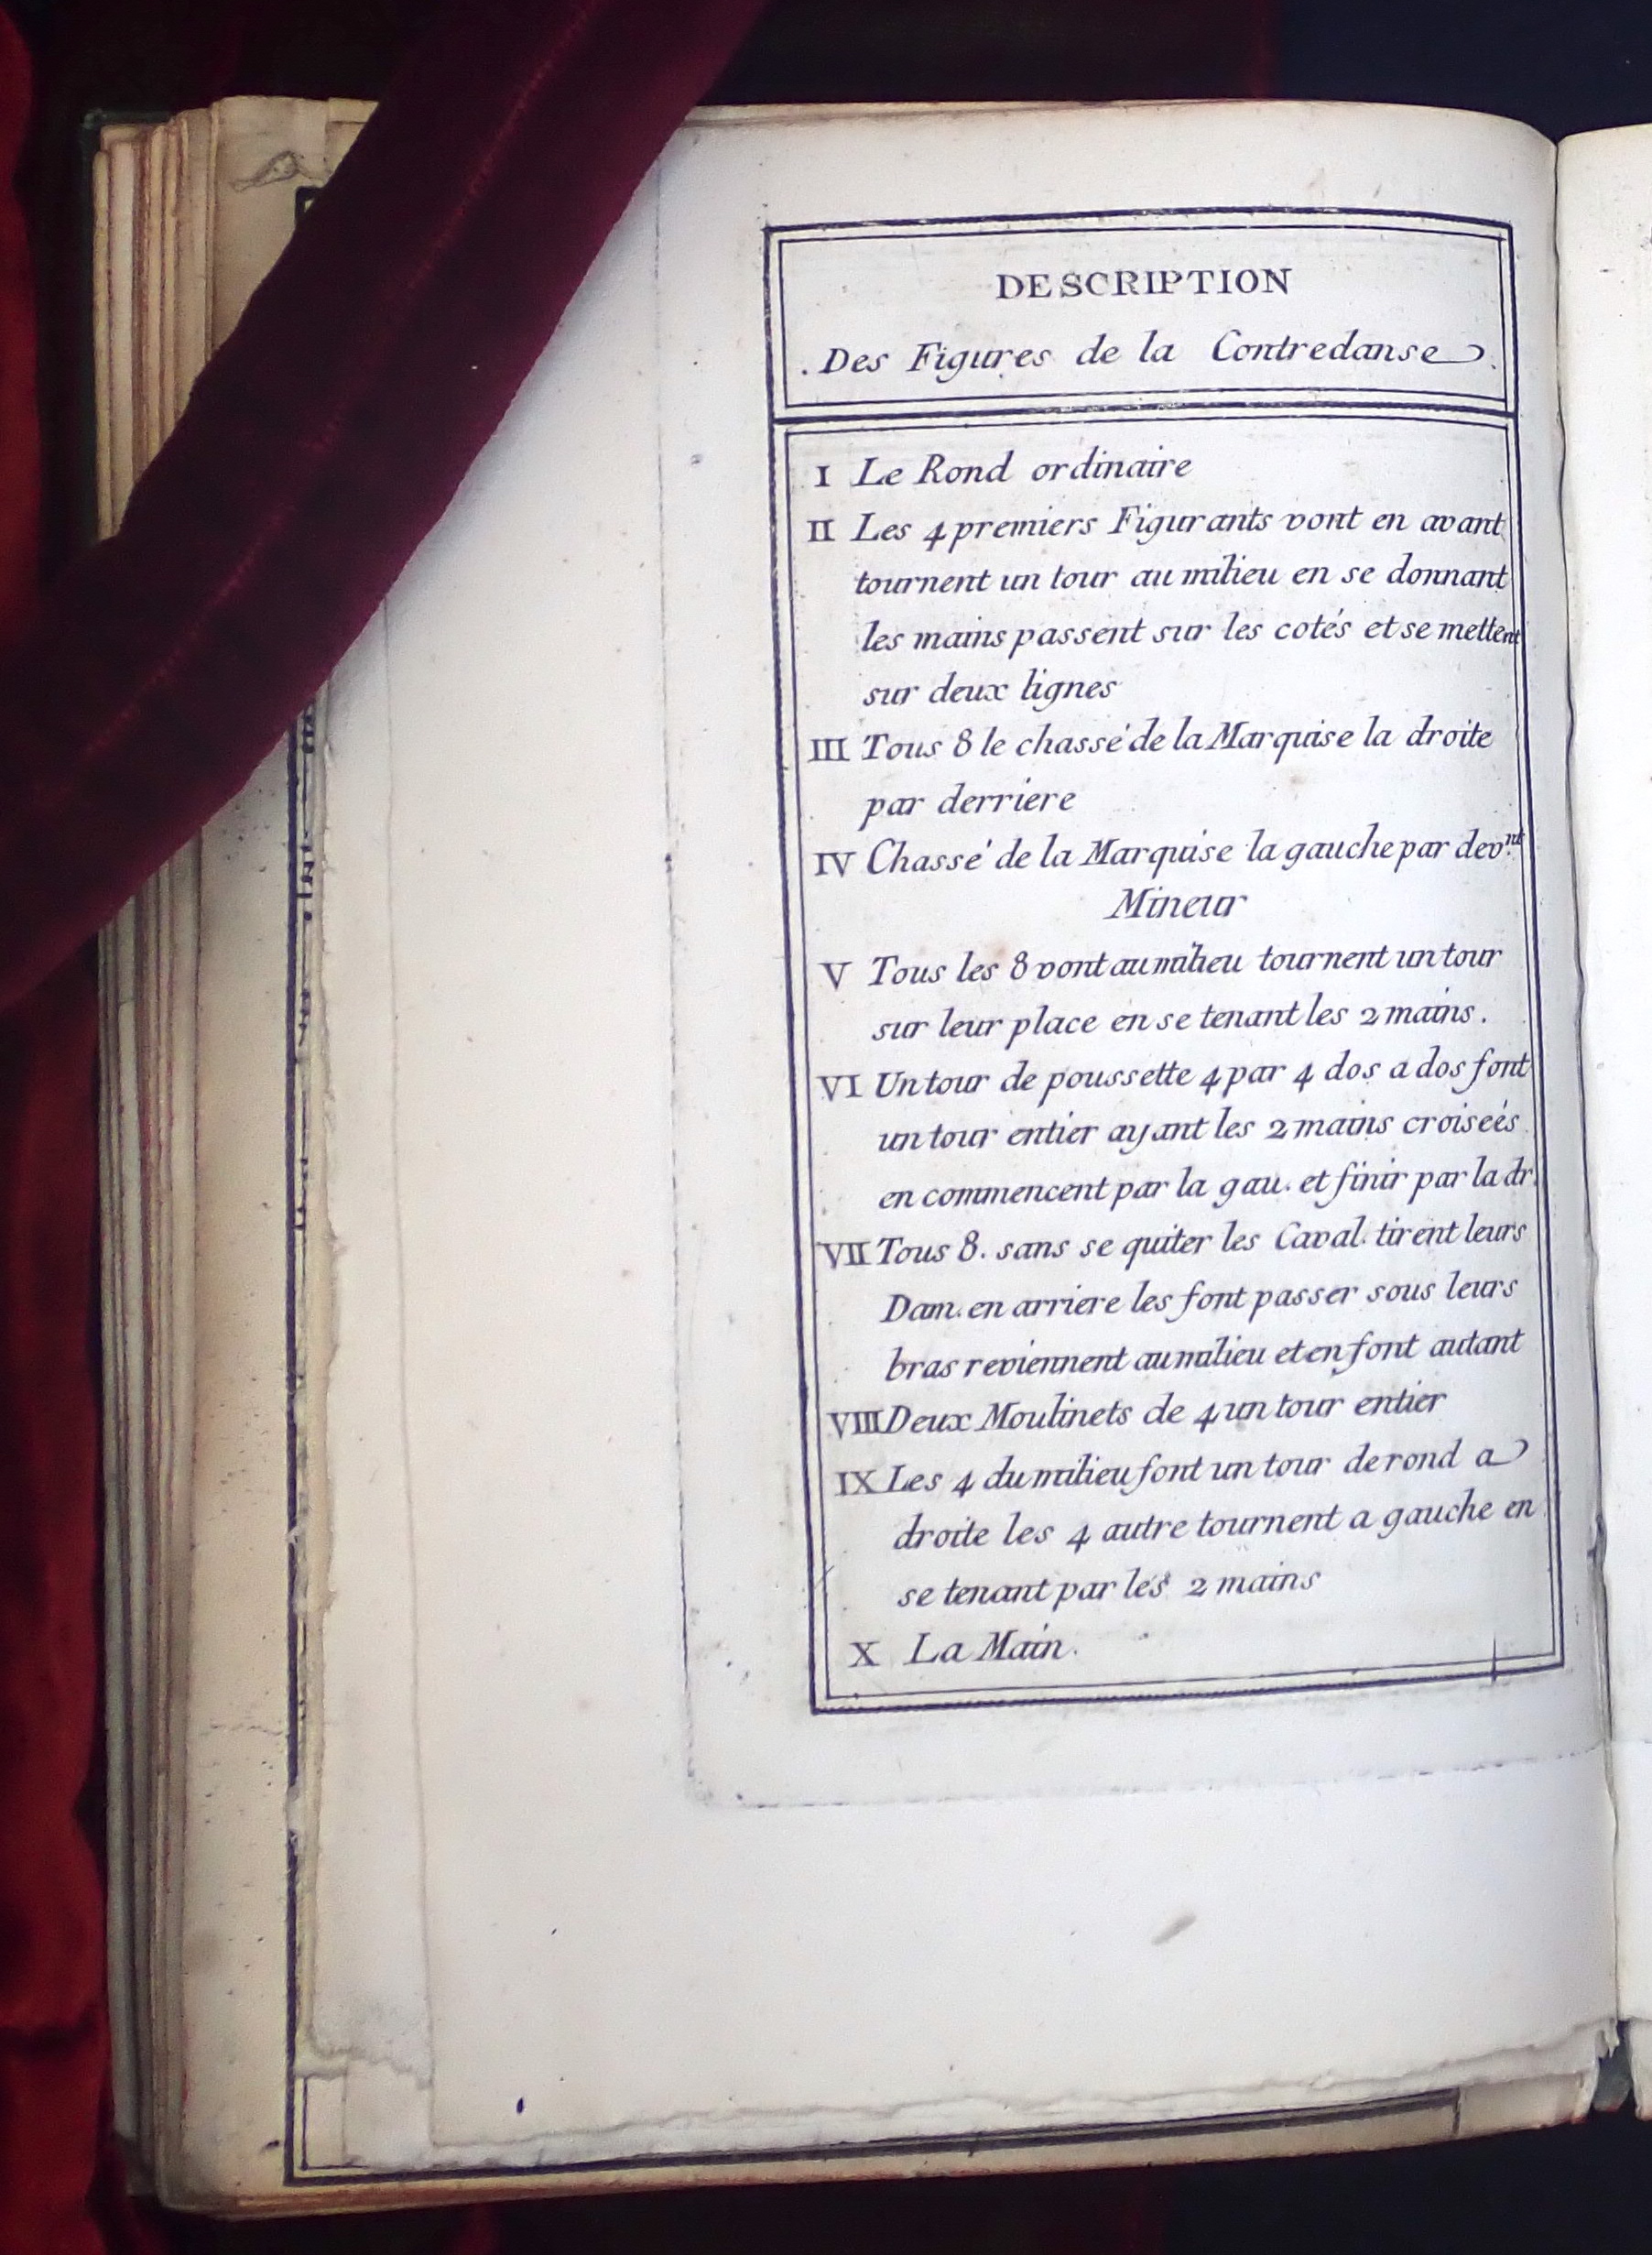 DESCRIPTION
. Des Figures de la Contredanse .
I Le Rond ordinaire
II Les 4 premiers Figurants vont en avant
tournent un tour au milieu en se donnant
les mains passent sur les cotés et se mettent
sur deux lignes
III Tous 8 le chassé de la Marquise la droite
par derriere
IV Chassé de la Marquise la gauche par dev.nt
Mineur
V Tous les 8 vont au milieu tournent un tour
sur leur place en se tenant les 2 mains.
VI Un tour de poussette 4 par 4 dos a dos font
un tour entier ayant les 2 mains croiseés
en commencent par la gau. et finir par la dr.
VII Tous 8. sans se quiter les Caval. tirent leurs
Dam. en arriere les font passer sous leurs
bras reviennent au milieu et en font autant
VIII Deux Moulinets de 4 un tour entier
IX Les 4 du milieu font un tour de rond a
droite les 4 autre tournent a gauche en
se tenant par les 2 mains
X La Main.